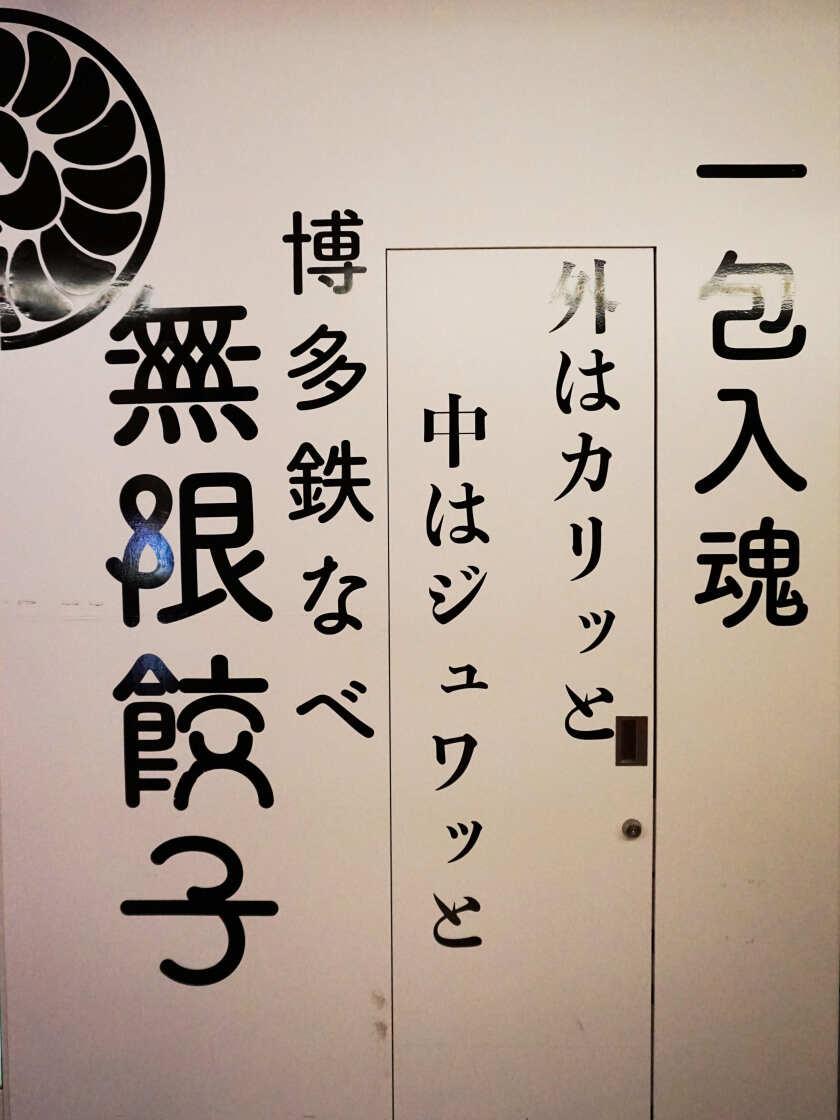 一包入魂
外はカリッと
中はジュワッと
博多鉄なべ
無限餃子